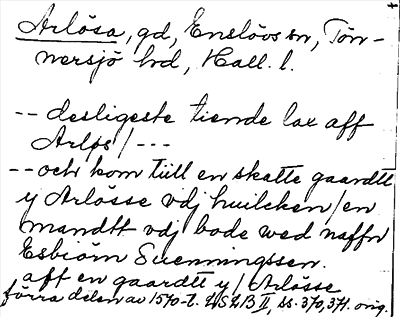 Arlösa, gd, Enslövs sn, Tön-
nersjö hd, Hall. l.
-- desligeste tiende lax aff
Arløs/ ---
-- och kom tiill en skatte gaardtt
y Arlösse vdj huilcken/en
mandtt vdj bode wed naffn
Esbiörn Suenningssen.
aff en gaardtt y/Arlösse
förra delen av 1570-t. LSLB II, ss. 370, 371. orig.